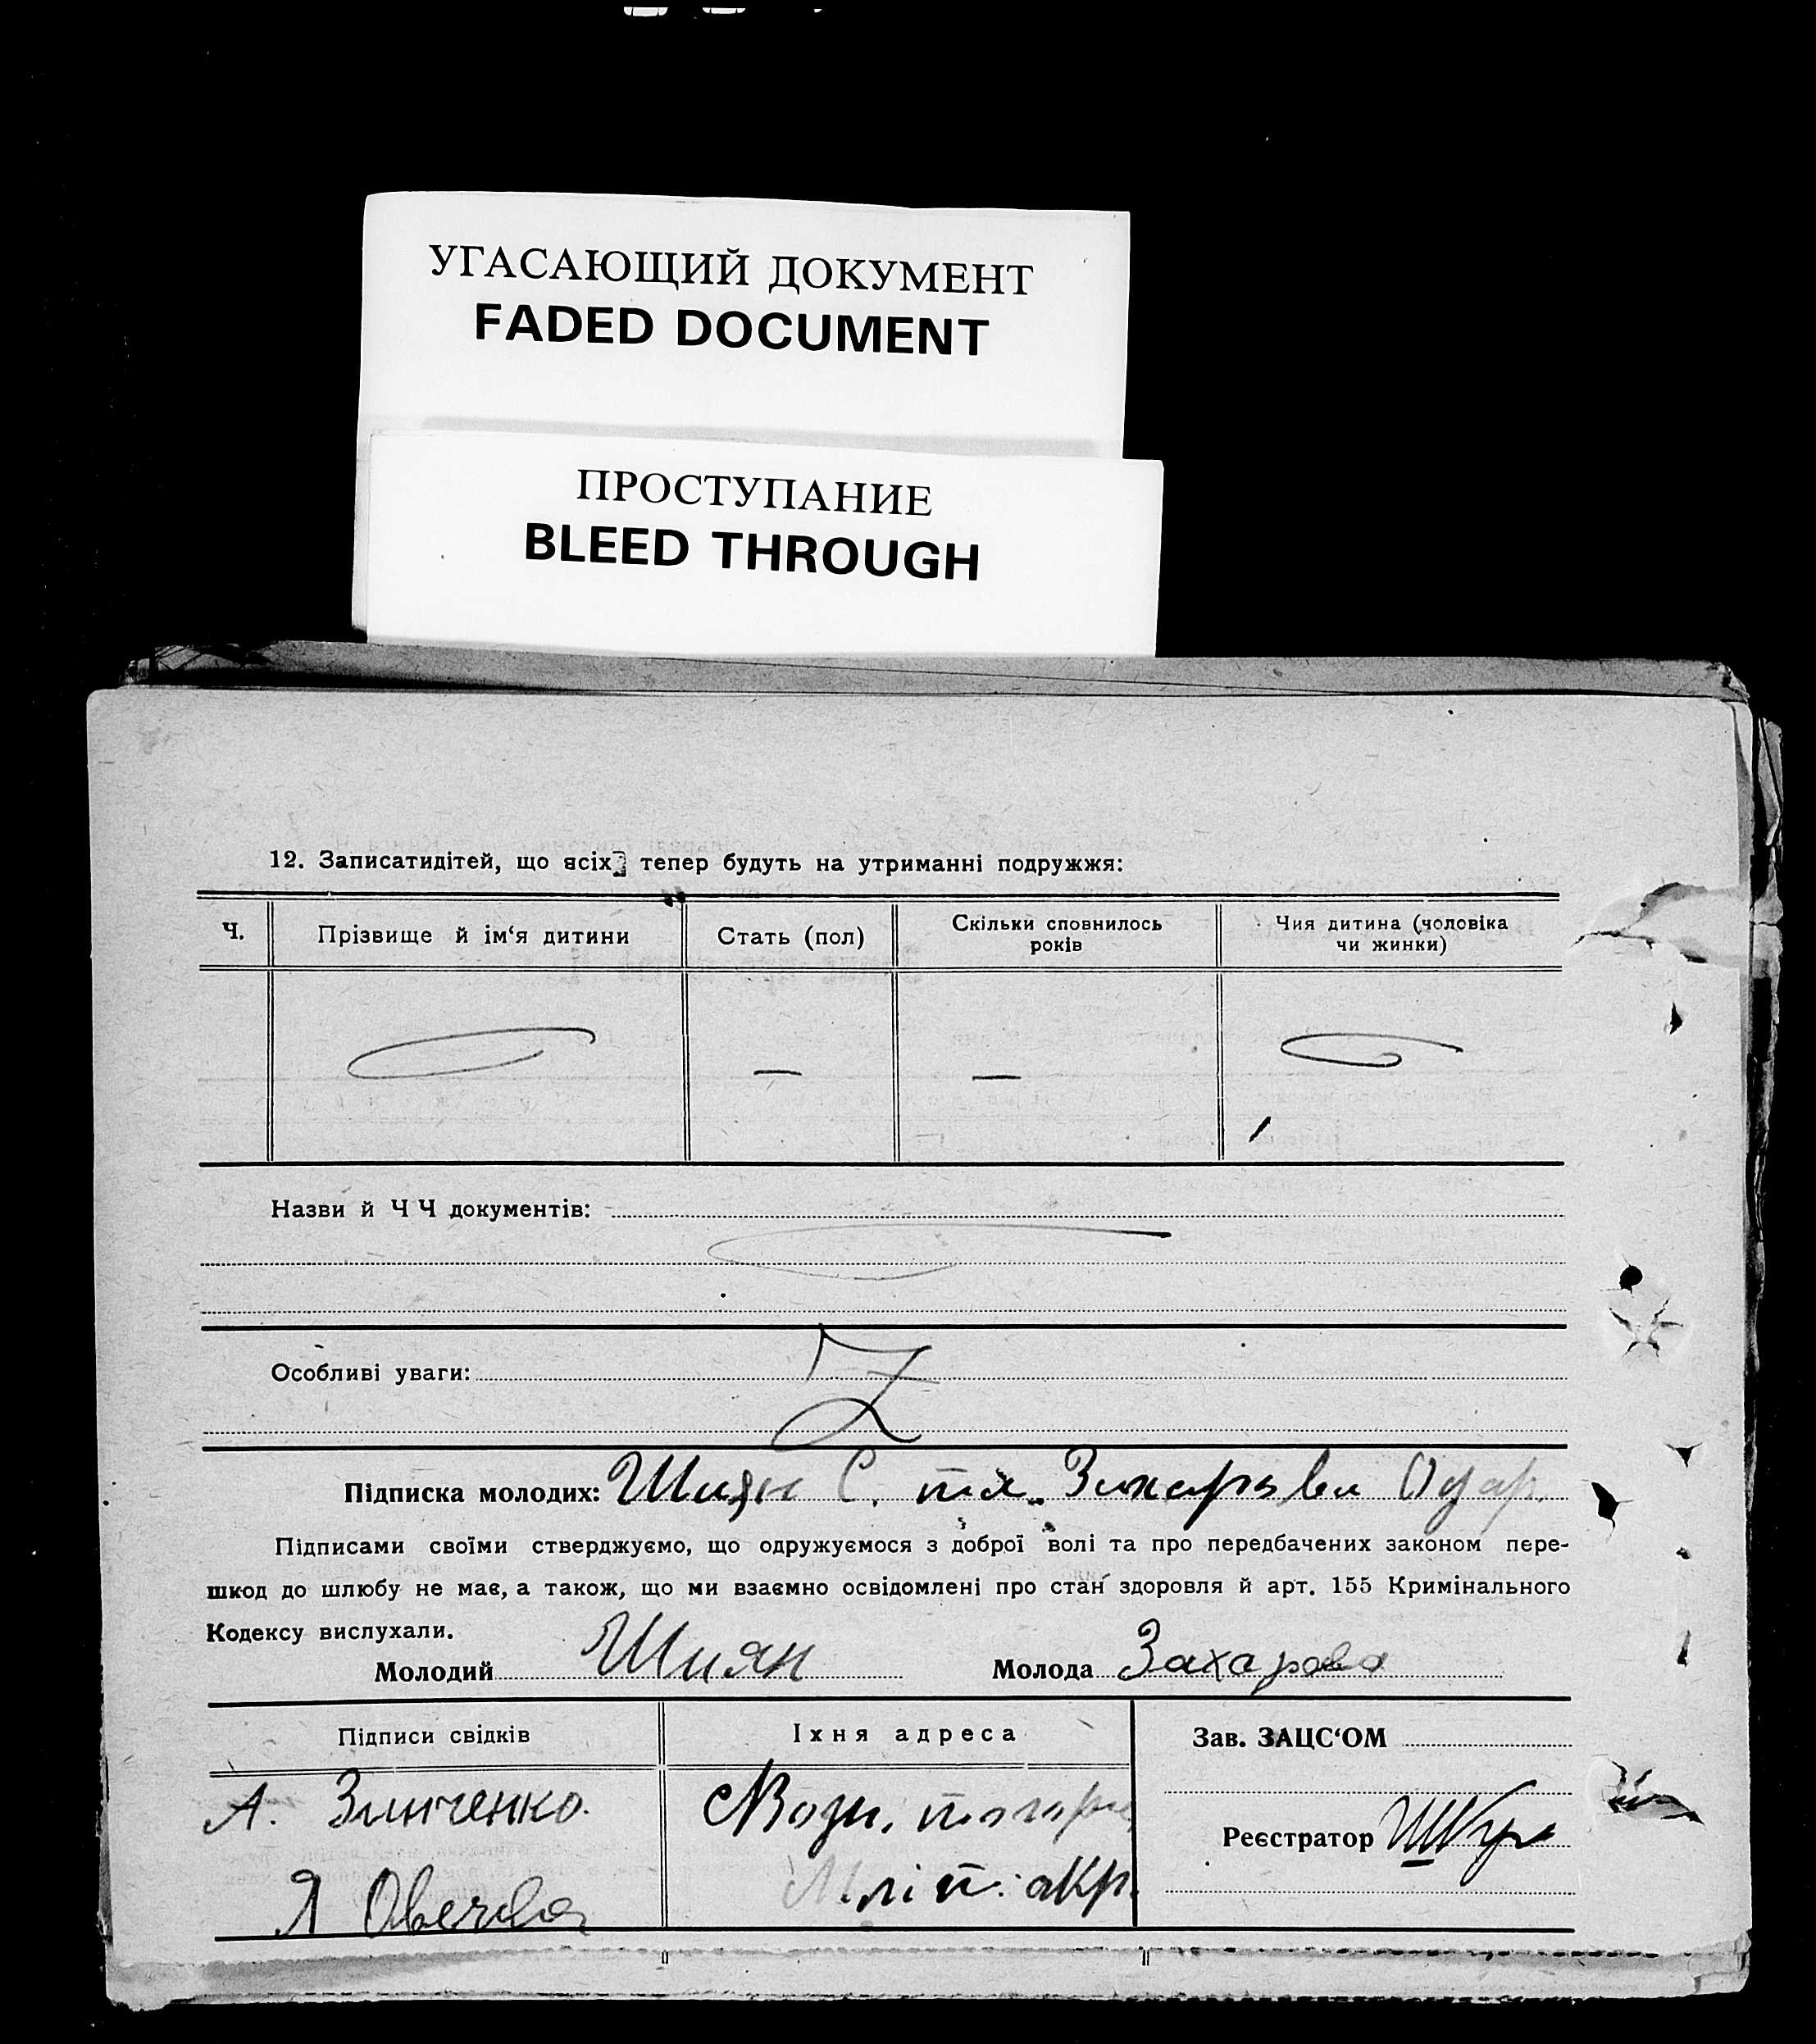 УГАСАЮЩИЙ ДОКУМЕНТ
FADED DOCUMENT
ПРОСТУПАНИЕ
BLEED THROUGH
12. Записатидітей, що всіх тепер будуть на утриманні подружжя:
Ч.
Прізвище й ім‘я дитини
Стать (пол)
Скільки сповнилось
років
Чия дитина (чоловіка
чи жинки)
— —
Назви й Ч Ч документів:
Особливі уваги:
Підписка молодих: Шиян С. та Захарова Одар.
Підписами своїми стверджуємо, що одружуємося з доброї волі та про передбачених законом пере-
шкод до шлюбу не має, а також, що ми взаємно освідомлені про стан здоровля й арт. 155 Кримінального
Кодексу вислухали.
Молодий Шиян Молода Захарова
Підписи свідків
Їхня адреса
Зав. ЗАЦС‘ОМ
А. Зинченко.
Я
Реєстратор